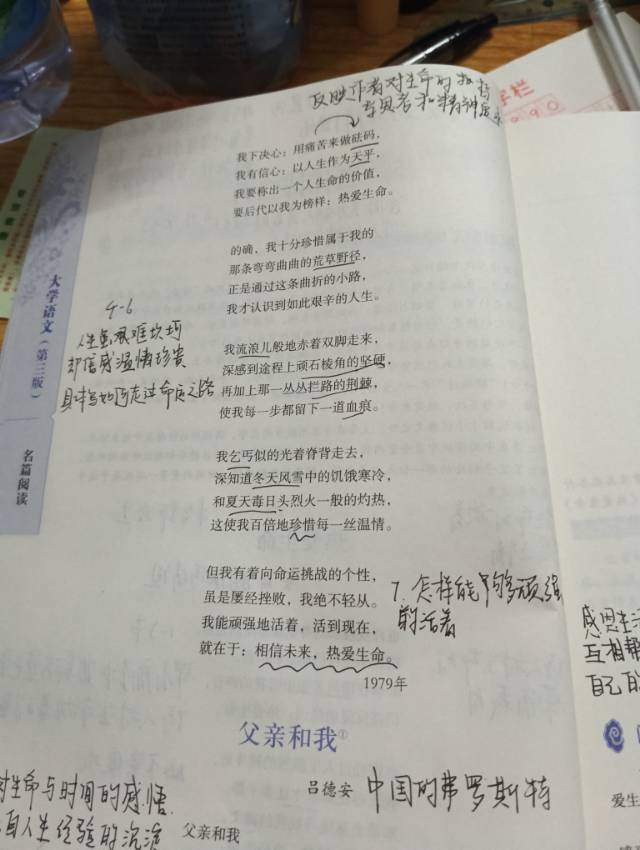 反映作者对生命的
专思考和精神
我下决心：用痛苦来做砝码，
我有信心：以人生作为天平，
我要称出一个人生命的价值，
要后代以我为榜样：热爱生命。
的确，我十分珍惜属于我的
那条弯弯曲曲的荒草野径，
正是通过这条曲折的小路，
我才认识到如此艰辛的人生。
我流浪儿般地赤着双脚走来，
深感到途程上顽石棱角的坚硬，
再加上那一丛丛拦路的荆棘，
使我每一步都留下一道血痕。
我乞丐似的光着脊背走去，
深知道冬天风雪中的饥饿寒冷，
和夏天毒日头烈火一般的灼热，
这使我百倍地珍惜每一丝温情。
但我有着向命运挑战的个性，
虽是屡经挫败，我绝不轻从。
我能顽强地活着，活到现在，
就在于：相信未来，热爱生命。
1979年
大学语文（第三版）
名篇阅读
4-6
人生虽艰难坎坷
却倍感温情珍贵
具体写如何走过命运之路
7. 怎样能够顽强
的活着
父亲和我①
吕德安
中国的弗罗斯特
父亲和我
对生命与时间的感悟
自人生经验的沉淀
感恩生活
互相帮
自己的
爱生